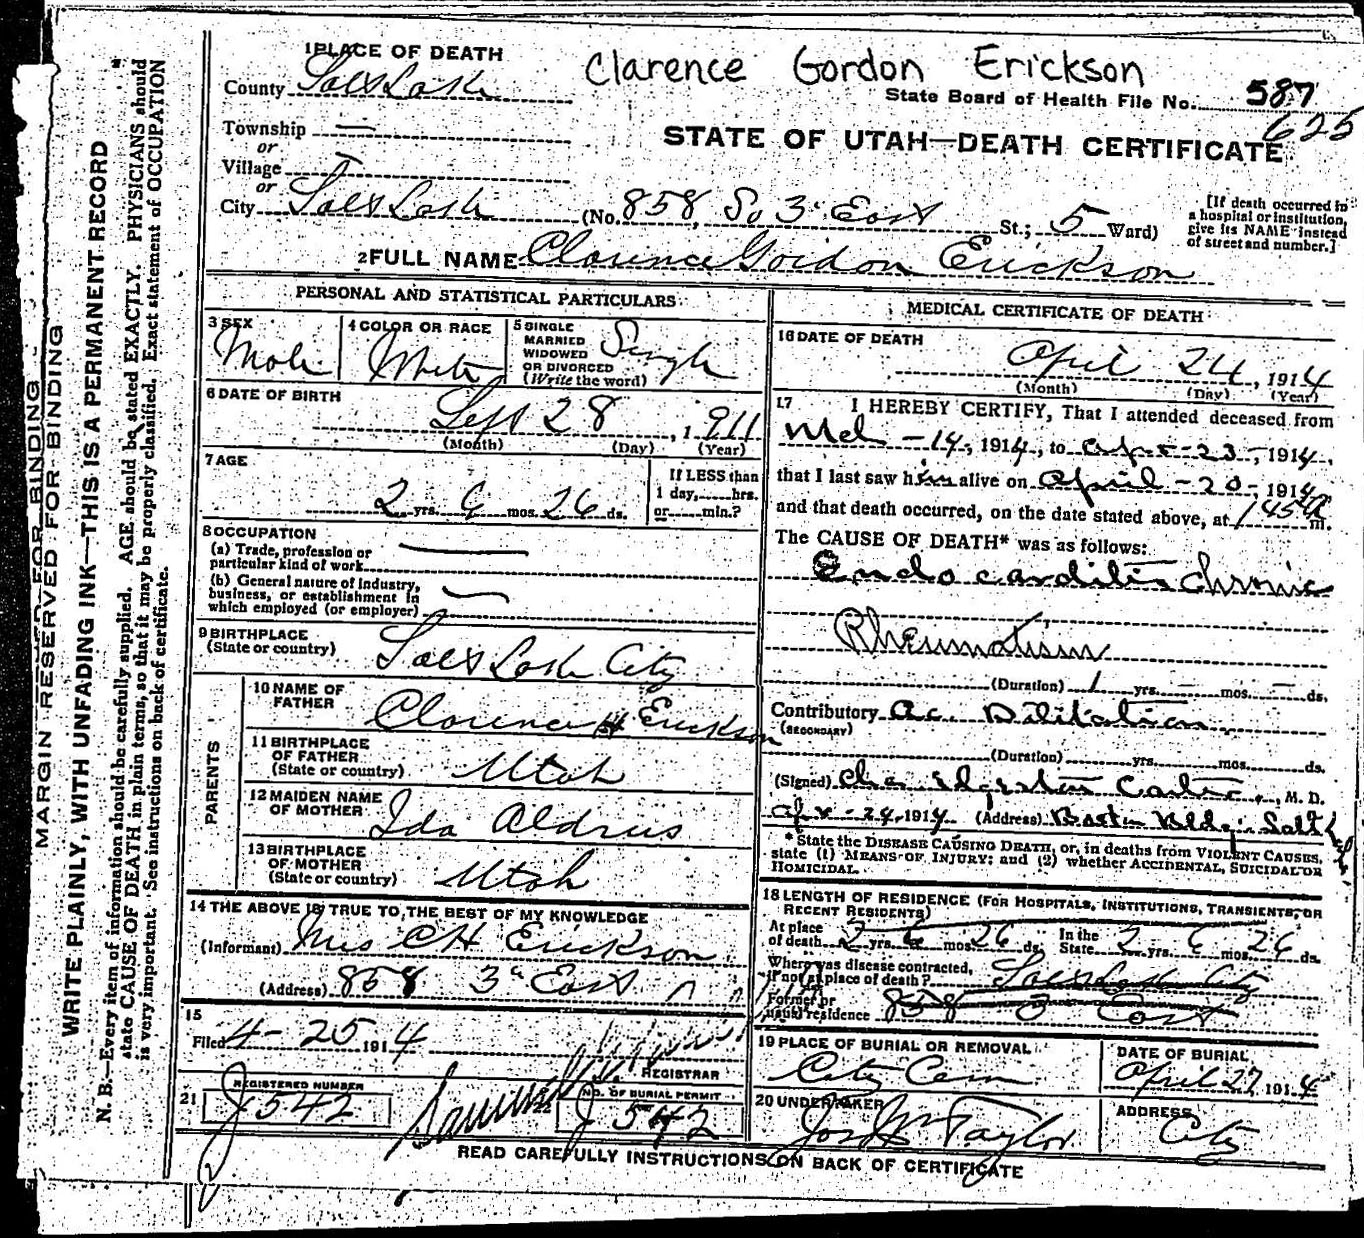 1 PLACE OF DEATH
Clarence Gordon Erickson
County Salt Lake
State Board of Health File No. 587
625
Township —
or
STATE OF UTAH—DEATH CERTIFICATE
Village
or
City Salt Lake (No. 858 So 3d East St.; 5 Ward)
[If death occurred in a hospital or institution, give its NAME instead of street and number.]
2 FULL NAME Clarence Gordon Erickson
PERSONAL AND STATISTICAL PARTICULARS
3 SEX Male
4 COLOR OR RACE White
5 SINGLE MARRIED WIDOWED OR DIVORCED (Write the word) Single
6 DATE OF BIRTH Sept 28, 1911
(Month) (Day) (Year)
7 AGE 2 yrs. 6 mos. 26 ds.
If LESS than 1 day, hrs. or min.?
8 OCCUPATION
(a) Trade, profession or particular kind of work —
(b) General nature of industry, business, or establishment in which employed (or employer) —
9 BIRTHPLACE (State or country) Salt Lake City
PARENTS
10 NAME OF FATHER Clarence H Erickson
11 BIRTHPLACE OF FATHER (State or country) Utah
12 MAIDEN NAME OF MOTHER Ida Aldrus
13 BIRTHPLACE OF MOTHER (State or country) Utah
14 THE ABOVE IS TRUE TO THE BEST OF MY KNOWLEDGE
(Informant) Mrs C H Erickson
(Address) 858 3d East
15
Filed 4-25 1914
REGISTRAR
21 REGISTERED NUMBER J 542
NO. OF BURIAL PERMIT J 542
MEDICAL CERTIFICATE OF DEATH
16 DATE OF DEATH
April 24, 1914
(Month) (Day) (Year)
17 I HEREBY CERTIFY, That I attended deceased from
Mch - 14, 1914, to Apr - 23, 1914,
that I last saw him alive on April - 20 -, 1914,
and that death occurred, on the date stated above, at 1 45 a m.
The CAUSE OF DEATH* was as follows:
Endocarditis Chronic
Rheumatism
(Duration) 1 yrs. — mos. — ds.
Contributory Ac. Dilitation
(SECONDARY)
(Duration) yrs. mos. ds.
(Signed) M. D.
Apr - 24, 1914 (Address) Boston Bldg. Salt L
* State the DISEASE CAUSING DEATH, or, in deaths from VIOLENT CAUSES, state (1) MEANS OF INJURY; and (2) whether ACCIDENTAL, SUICIDAL OR HOMICIDAL.
18 LENGTH OF RESIDENCE (FOR HOSPITALS, INSTITUTIONS, TRANSIENTS, OR RECENT RESIDENTS)
At place of death 2 yrs. 6 mos. 26 ds. In the State 2 yrs. 6 mos. 26 ds.
Where was disease contracted, if not at place of death? Salt Lake City
Former or usual residence 858 3 East
19 PLACE OF BURIAL OR REMOVAL City Cem
DATE OF BURIAL April 27, 1914
20 UNDERTAKER Jos Wm Taylor
ADDRESS City
READ CAREFULLY INSTRUCTIONS ON BACK OF CERTIFICATE
MARGIN RESERVED FOR BINDING
WRITE PLAINLY, WITH UNFADING INK—THIS IS A PERMANENT RECORD
N. B.—Every item of information should be carefully supplied. AGE should be stated EXACTLY. PHYSICIANS should
state CAUSE OF DEATH in plain terms, so that it may be properly classified. Exact statement of OCCUPATION
is very important. See instructions on back of certificate.